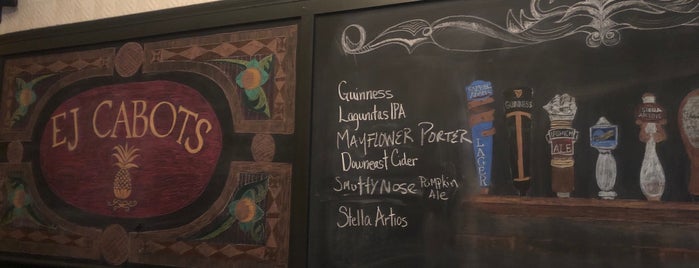 EJ CABOTS
Guinness
Lagunitas IPA
MAYFLOWER PORTER
Downeast Cider
Smuttynose Pumpkin
Ale
Stella Artios
LAGER
GUINNESS
ALE
STELLA
ARTOIS